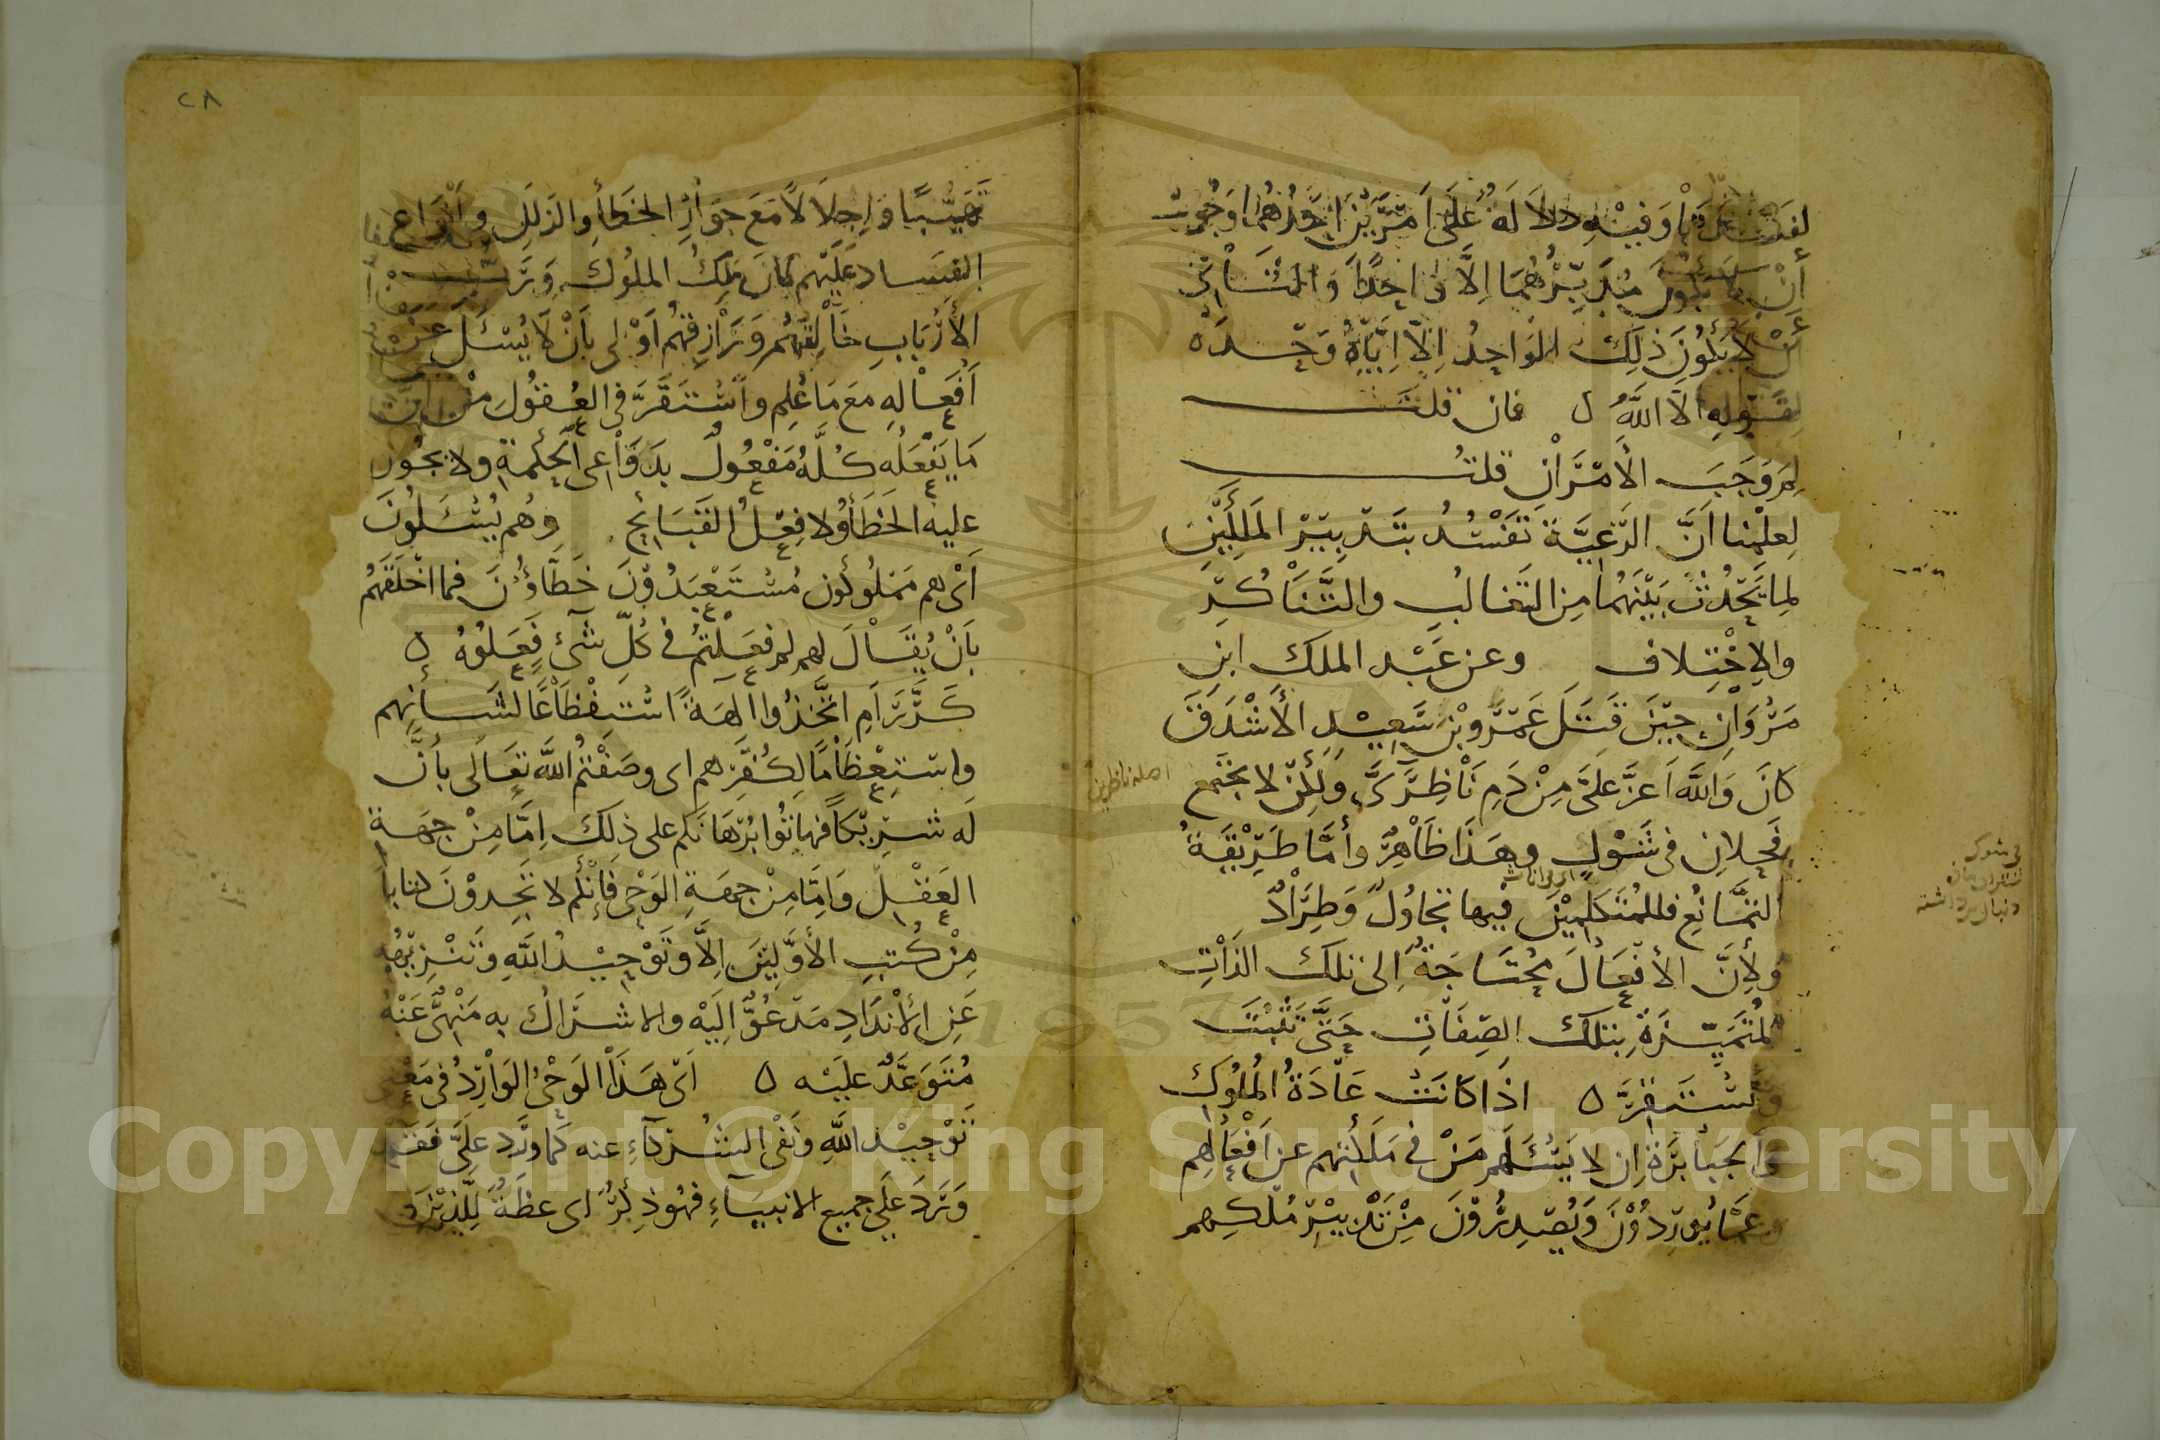 لفسدتا وفيه دلالة على أمرين احدهما وجوب
أن لا يكون مدبرهما إلا واحدًا والثاني
أن لا يكون ذلك الواحد إلا إياه وحده
لقوله الا الله ۵ فان قلت
لم وجب الأمران قلت
لعلمنا أن الرعية تفسد بتدبير الملكين
لما يحدث بينهما من التغالب والتناكر
والاختلاف وعن عبد الملك ابن
مروان حين قتل عمرو بن سعيد الأشدق
كان والله أعز علي من دم ناظري ولكن لا يجتمع
فحلان في شول وهذا ظاهر وأما طريقة
التمانع فللمتكلمين فيها تجاول وطراد
ولأن الأفعال محتاجة إلى تلك الذات
المتميزة بتلك الصفات حتى تثبت
وتستقر ۵ اذا كانت عادة الملوك
والجبابرة ان لا يسئلهم من في مملكتهم عن أفعالهم
وعما يوردون ويصدرون من تدبير ملكهم
اصله ناظرين
٢٨
تهيبًا واجلالًا مع جواز الخطأ والزلل وأنواع
الفساد عليهم كان ملك الملوك ورب
الأرباب خالقهم ورازقهم أولى بأن لا يسئل عن
أفعاله مع ما علم واستقر في العقول من أن
ما يفعله كله مفعول بدواعي الحكمة ولا يجوز
عليه الخطأ ولا فعل القبائح وهم يسئلون
أي هم مملوكون مستعبدون خطاؤن فما اخلقهم
بأن يقال لهم لم فعلتم في كل شئ فعلوه ۵
كرر أم اتخذوا آلهة استفظاعًا لشأنهم
واستعظامًا لكفرهم اى وصفتم الله تعالى بأن
له شريكًا فهاتوا برهانكم على ذلك إما من جهة
العقل وإما من جهة الوحي فإنكم لا تجدون كتابا
من كتب الأولين إلا وتوحيد الله وتنزيهه
عن الأنداد مدعو إليه والاشراك به منهي عنه
متوعد عليه ۵ أي هذا الوحي الوارد في معنى
توحيد الله ونفي الشركاء عنه كما ورد علي فقد
ورد على جميع الانبياء فهو ذكر اى عظة للذين
Copyright © King Saud University
1957